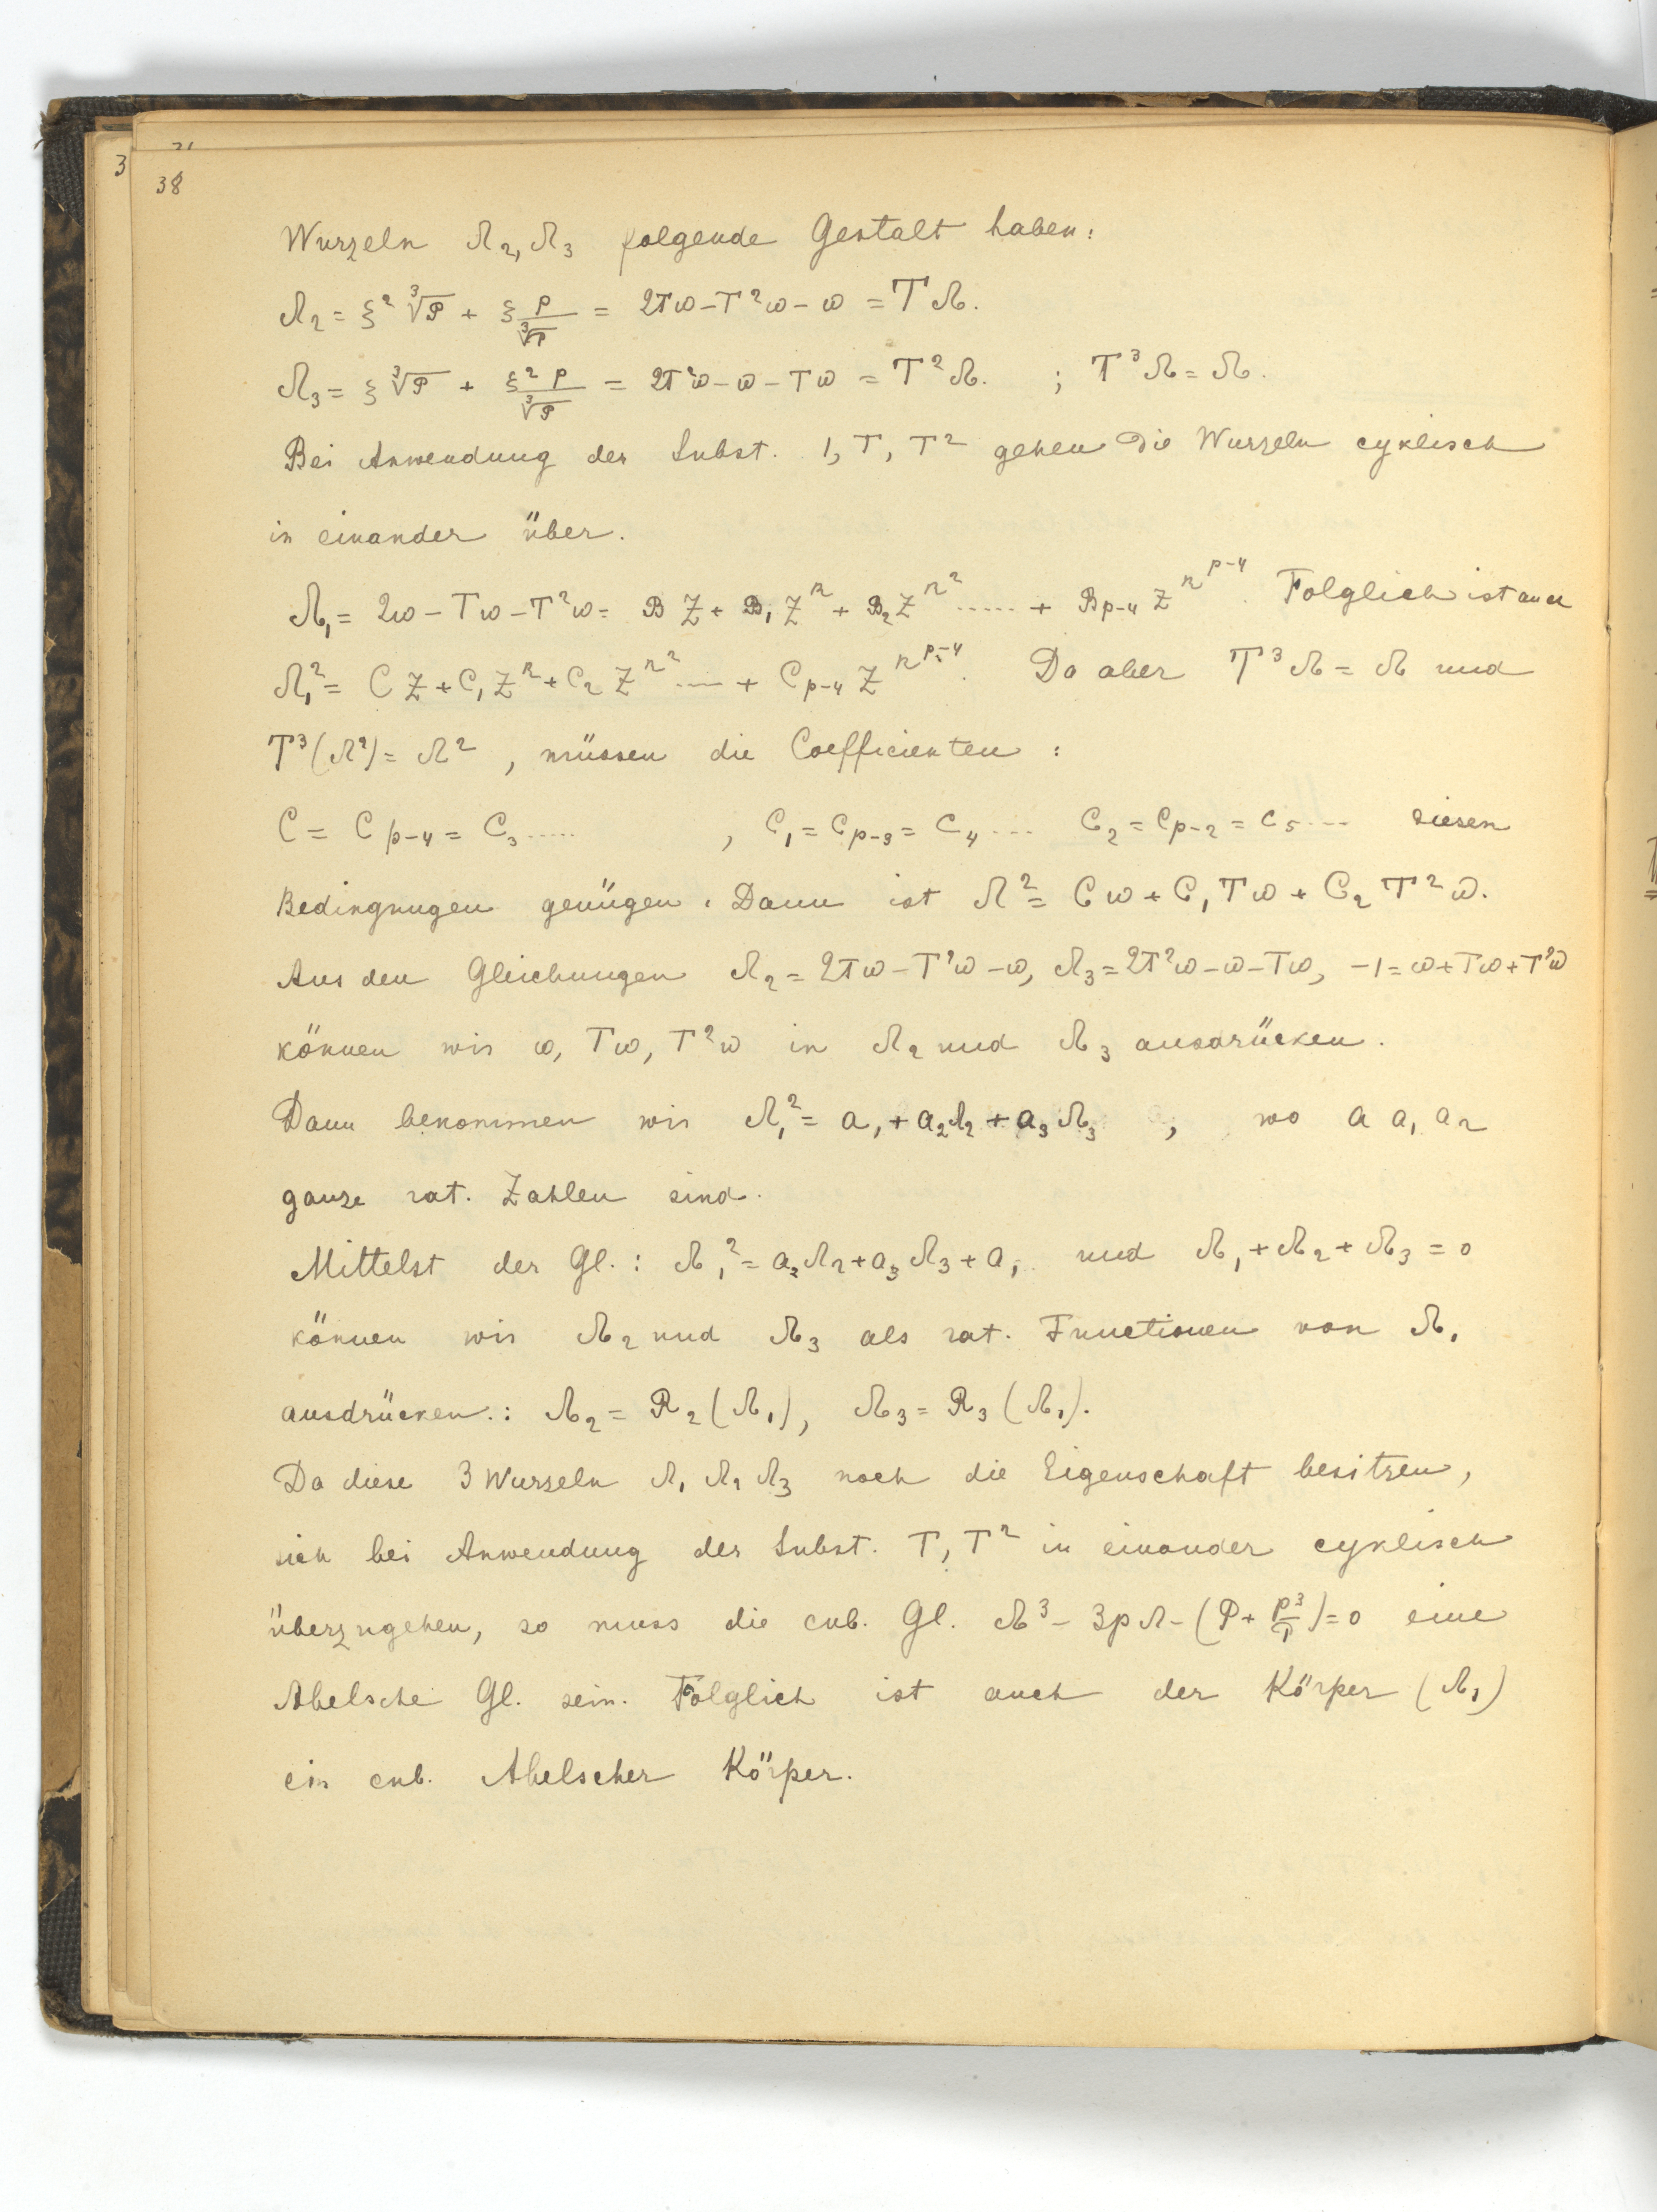 3
38
Wurzeln Λ₂, Λ₃ folgende Gestalt haben:
Λ₂ = ξ² ∛P + ξ p/∛P = 2Tω – T²ω – ω = TΛ.
Λ₃ = ξ ∛P + ξ² p/∛P = 2T²ω – ω – Tω = T²Λ. ; T³Λ = Λ.
Bei Anwendung der Subst. 1, T, T² gehen die Wurzeln cyklisch
in einander über.
Λ₁ = 2ω – Tω – T²ω = B Z + B₁ Z^r + B₂ Z^r² ..... + B_p-4 Z^r^p-4. Folglich ist auch
Λ₁² = C Z + C₁ Z^r + C₂ Z^r² .... + C_p-4 Z^r^p-4. Da aber T³Λ = Λ und
T³(Λ²) = Λ² , müssen die Coefficienten :
C = C_p-4 = C₃ ..... , C₁ = C_p-3 = C₄ ... C₂ = C_p-2 = C₅ ... diesen
Bedingungen genügen. Dann ist Λ² = Cω + C₁Tω + C₂T²ω.
Aus den Gleichungen Λ₂ = 2Tω – T²ω – ω, Λ₃ = 2T²ω – ω – Tω, –1 = ω + Tω + T²ω
können wir ω, Tω, T²ω in Λ₂ und Λ₃ ausdrücken.
Dann bekommen wir Λ₁² = a₁ + a₂Λ₂ + a₃Λ₃ , wo a a₁ a₂
ganze rat. Zahlen sind.
Mittelst der Gl.: Λ₁² = a₂Λ₂ + a₃Λ₃ + a₁ und Λ₁ + Λ₂ + Λ₃ = 0
können wir Λ₂ und Λ₃ als rat. Functionen von Λ₁
ausdrücken.: Λ₂ = R₂(Λ₁), Λ₃ = R₃(Λ₁).
Da diese 3 Wurzeln Λ₁ Λ₂ Λ₃ noch die Eigenschaft besitzen,
sich bei Anwendung der Subst. T, T² in einander cyklisch
überzugehen, so muss die cub. Gl. Λ³ – 3pΛ – (P + p³/P) = 0 eine
Abelsche Gl. sein. Folglich ist auch der Körper (Λ₁)
ein cub. Abelscher Körper.